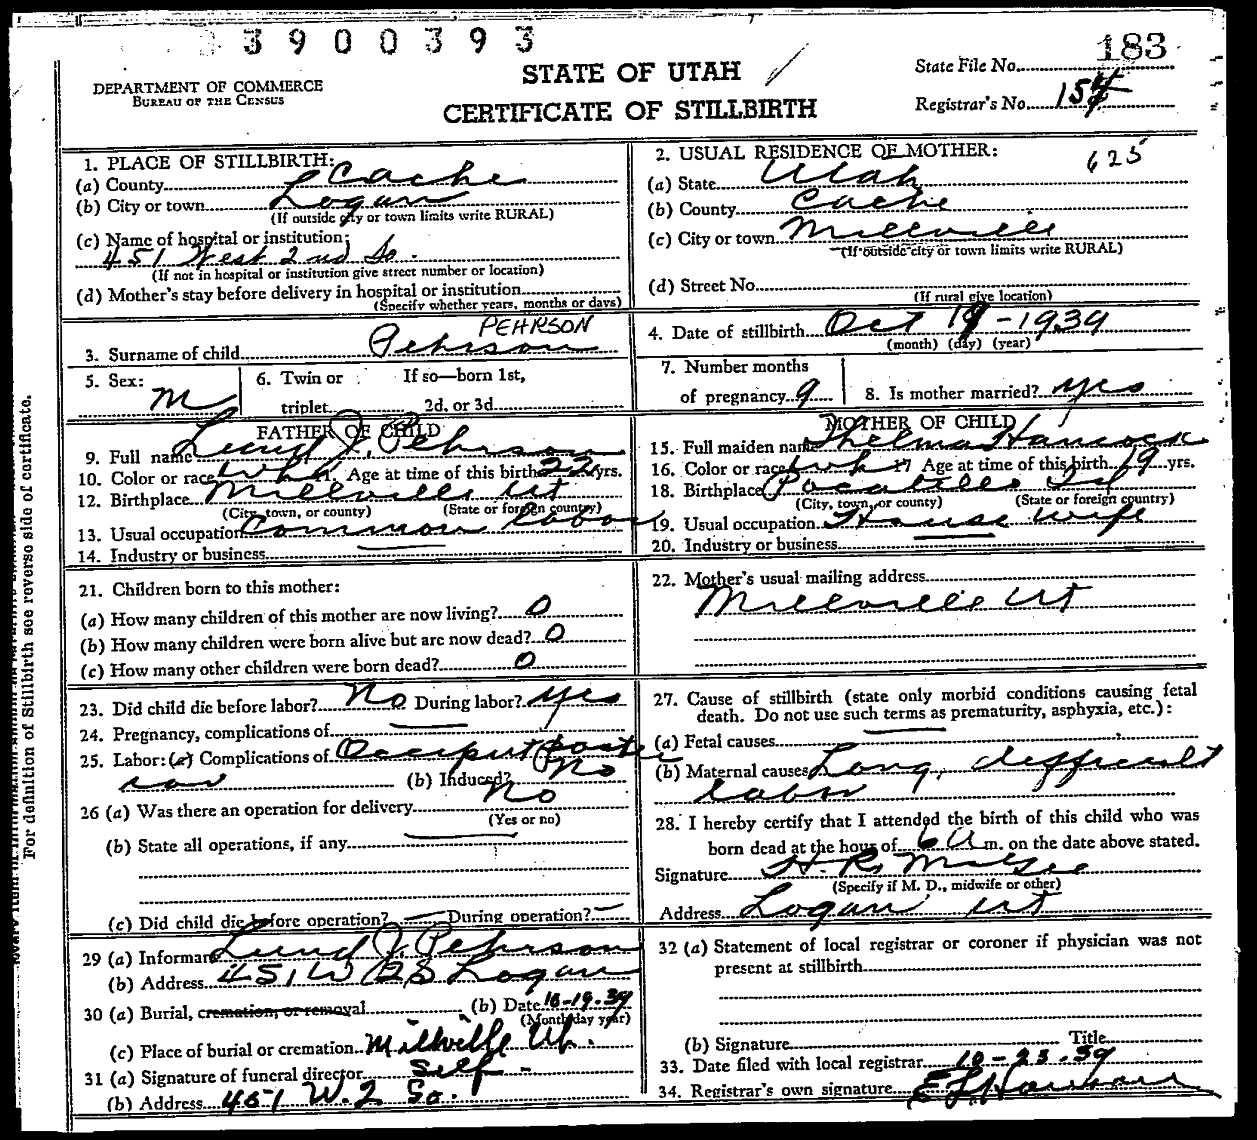 3900393
183
STATE OF UTAH
CERTIFICATE OF STILLBIRTH
DEPARTMENT OF COMMERCE
BUREAU OF THE CENSUS
State File No.
Registrar's No. 154
1. PLACE OF STILLBIRTH:
(a) County Cache
(b) City or town Logan
(If outside city or town limits write RURAL)
(c) Name of hospital or institution:
451 West 2nd So.
(If not in hospital or institution give street number or location)
(d) Mother's stay before delivery in hospital or institution
(Specify whether years, months or days)
2. USUAL RESIDENCE OF MOTHER: 625
(a) State Utah
(b) County Cache
(c) City or town Millville
(If outside city or town limits write RURAL)
(d) Street No.
(If rural give location)
PEHRSON
3. Surname of child Pehrson
4. Date of stillbirth Oct 19-1939
(month) (day) (year)
5. Sex: M
6. Twin or triplet
If so—born 1st, 2d, or 3d
7. Number months of pregnancy 9
8. Is mother married? yes
FATHER OF CHILD
9. Full name J. Pehrson
10. Color or race wht Age at time of this birth 22 yrs.
12. Birthplace Millville Ut
(City, town, or county) (State or foreign country)
13. Usual occupation Common labor
14. Industry or business
MOTHER OF CHILD
15. Full maiden name Thelma Hancock
16. Color or race wh 17 Age at time of this birth 19 yrs.
18. Birthplace Pocatello Id
(City, town, or county) (State or foreign country)
19. Usual occupation House wife
20. Industry or business
21. Children born to this mother:
(a) How many children of this mother are now living? 0
(b) How many children were born alive but are now dead? 0
(c) How many other children were born dead? 0
22. Mother's usual mailing address
Millville Ut
23. Did child die before labor? No During labor? yes
24. Pregnancy, complications of
25. Labor: (a) Complications of Occiput poste
rior (b) Induced? No
26 (a) Was there an operation for delivery No
(Yes or no)
(b) State all operations, if any
(c) Did child die before operation? During operation?
27. Cause of stillbirth (state only morbid conditions causing fetal
death. Do not use such terms as prematurity, asphyxia, etc.):
(a) Fetal causes
(b) Maternal causes Long, difficult
labor
28. I hereby certify that I attended the birth of this child who was
born dead at the hour of 6 A m. on the date above stated.
Signature H. R. McGee
(Specify if M. D., midwife or other)
Address Logan Ut
29 (a) Informant J. Pehrson
(b) Address 451 W 2 S Logan
30 (a) Burial, cremation, or removal (b) Date 10-19-39
(Month day year)
(c) Place of burial or cremation Millville Ut.
31 (a) Signature of funeral director Self
(b) Address 451 W. 2 So.
32 (a) Statement of local registrar or coroner if physician was not
present at stillbirth
(b) Signature Title
33. Date filed with local registrar 10-23-39
34. Registrar's own signature
For definition of Stillbirth see reverse side of certificate.